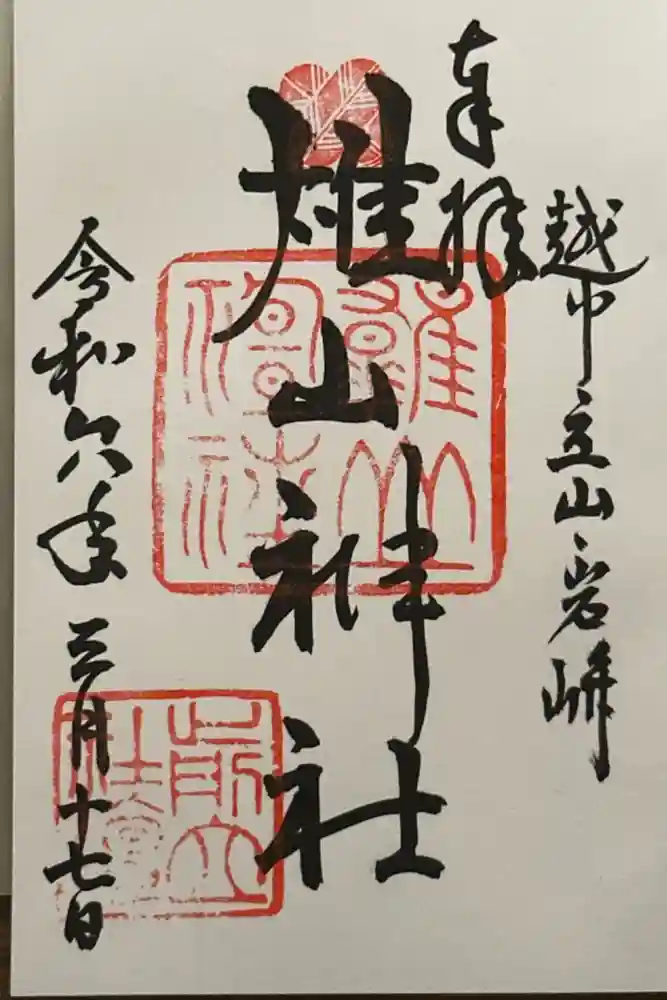 奉拝
越中立山岩峅
雄山神社
令和六年三月十七日
雄山神社
前立社壇